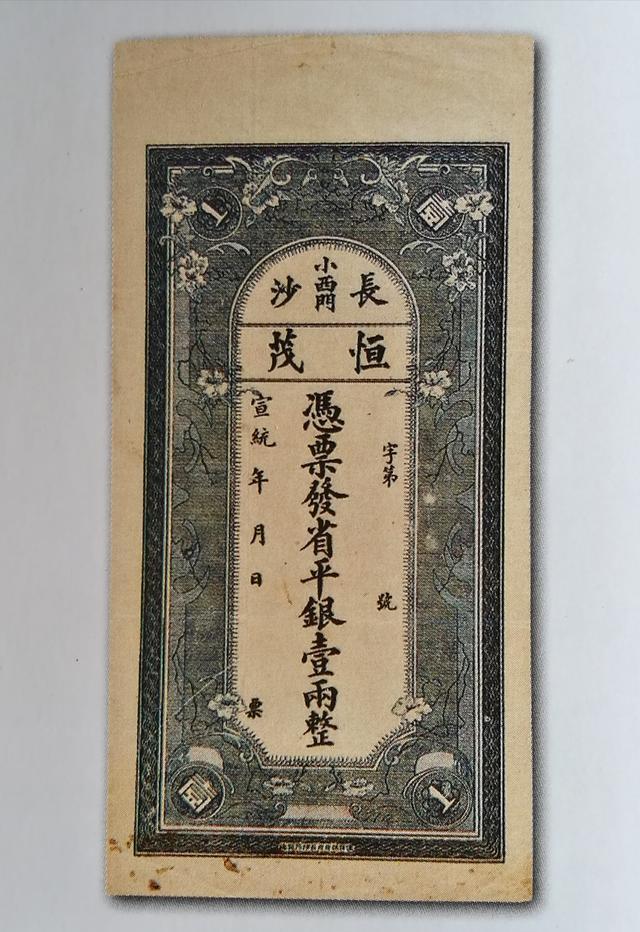 壹
1
長沙
小西門
恒茂
字第 號
憑票發省平銀壹兩整
宣統 年 月 日 票
壹
1